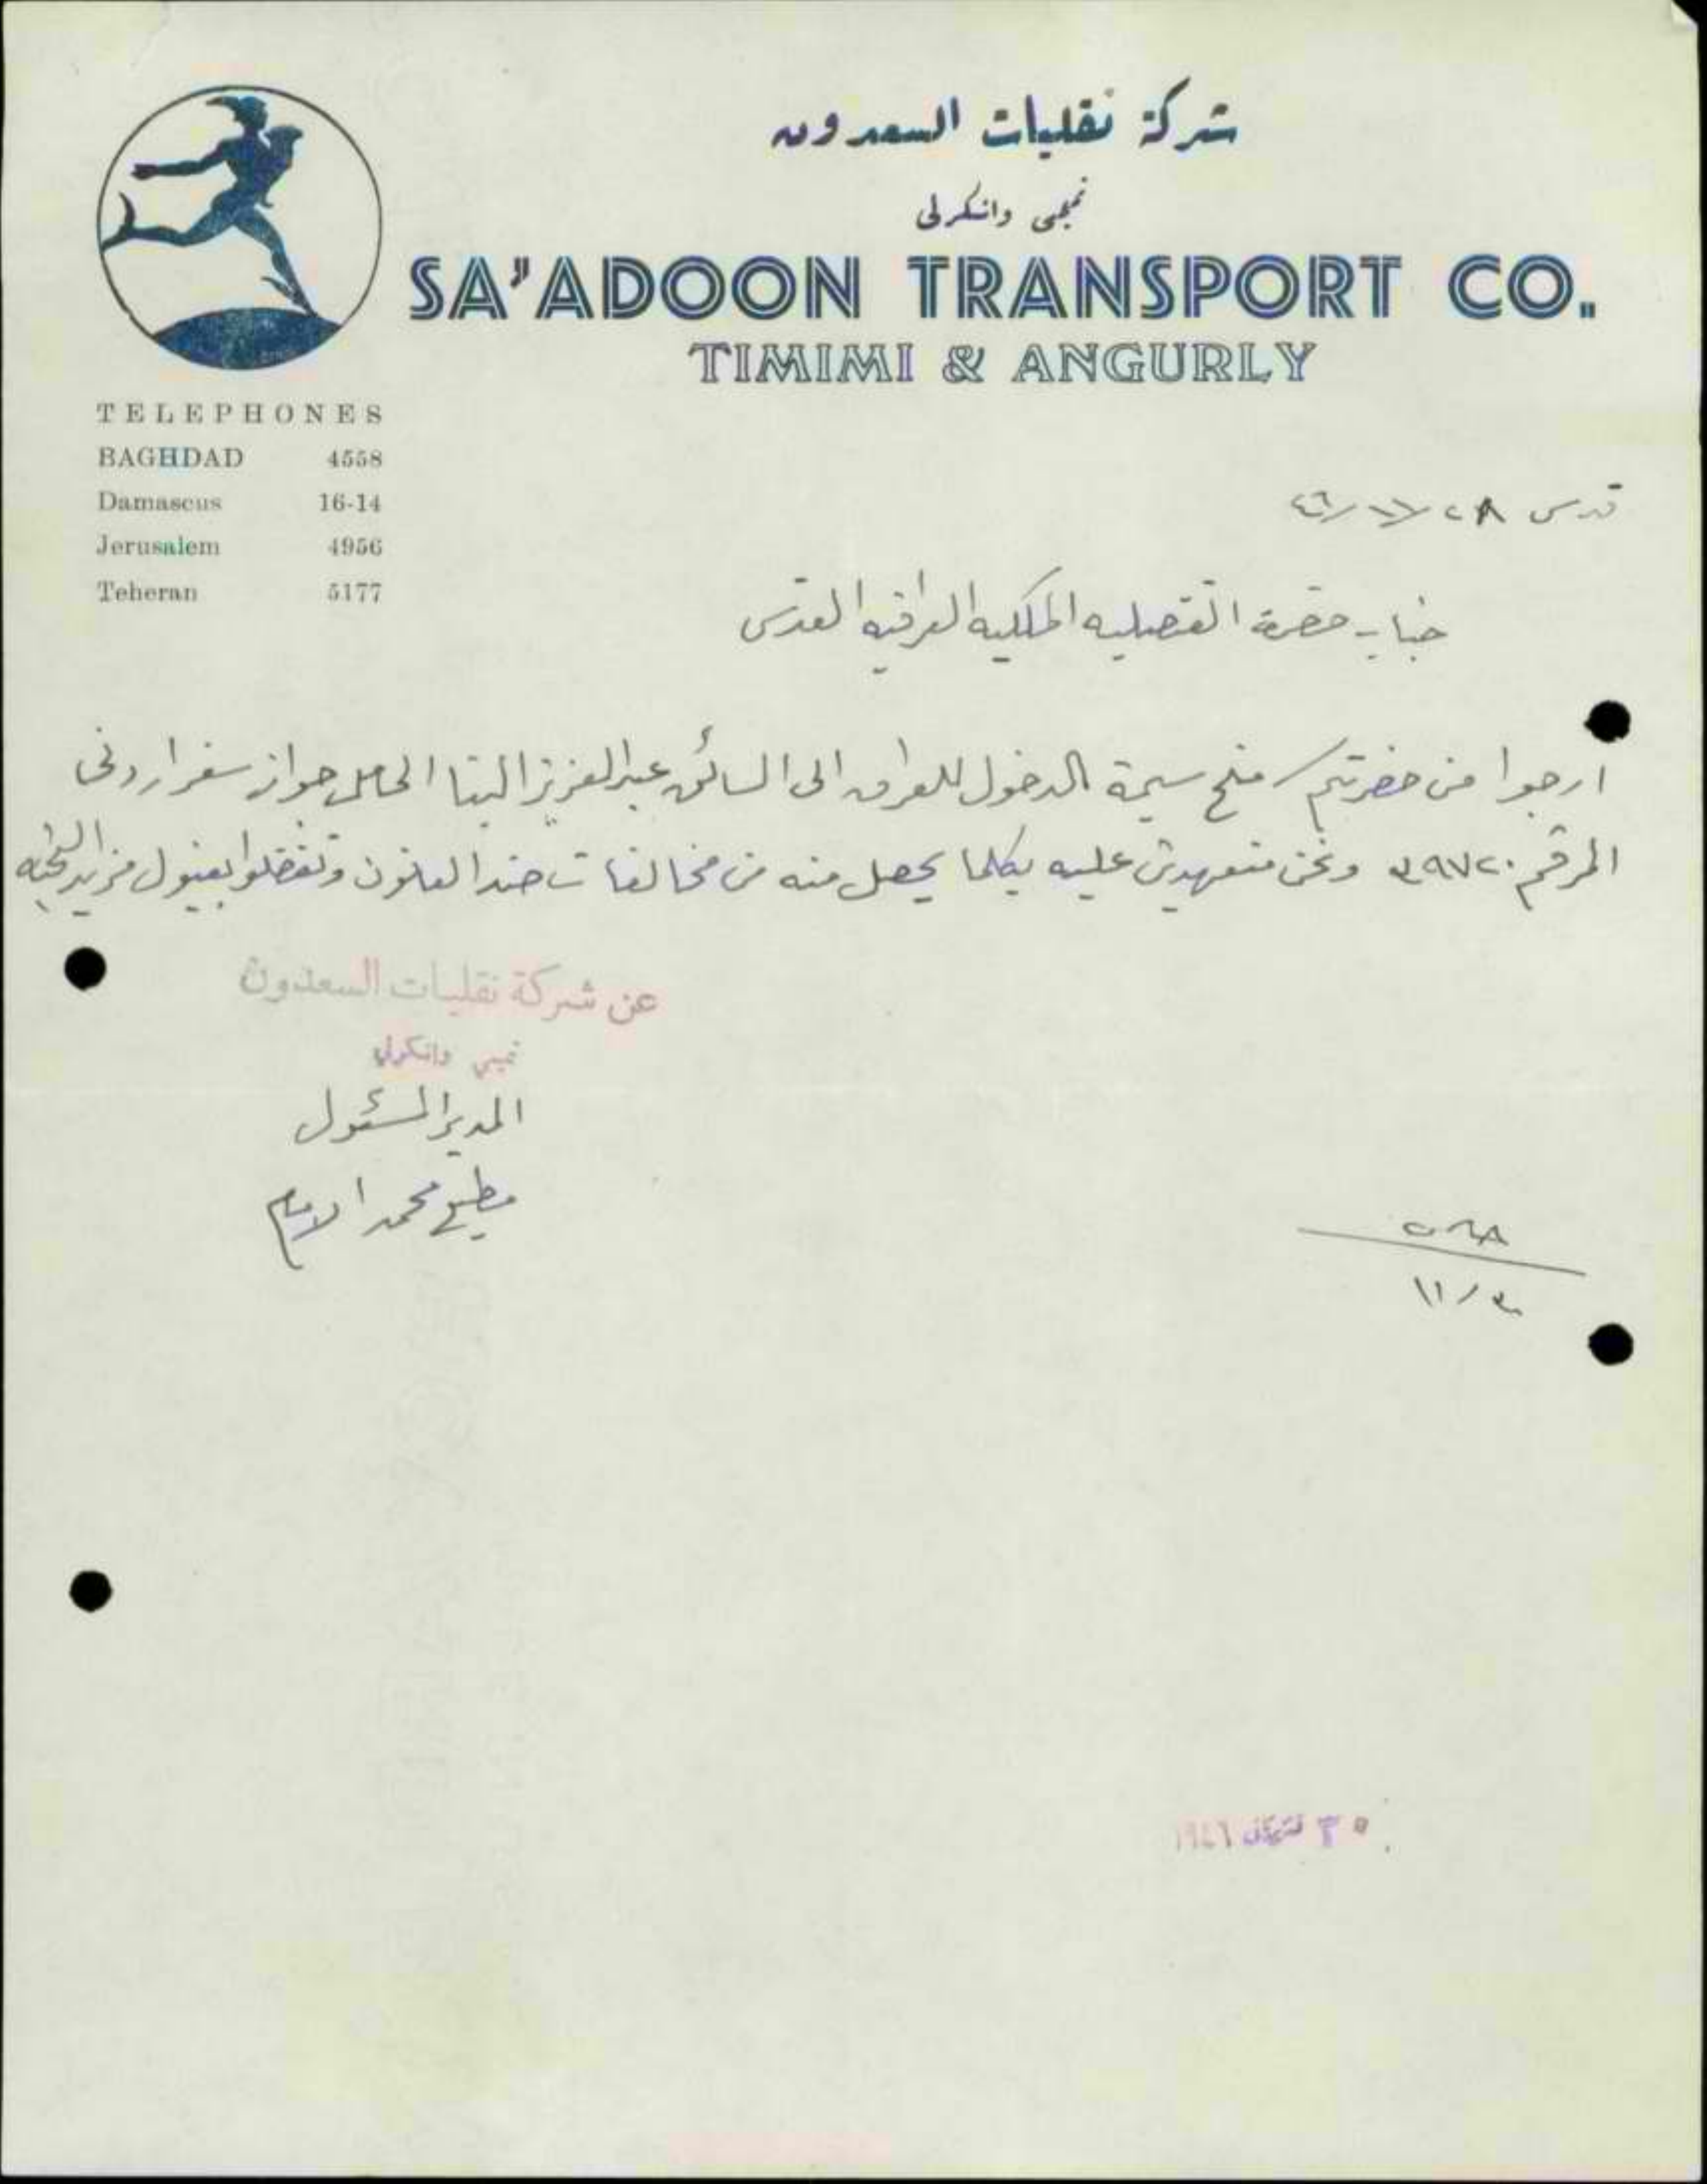 شركة نقليات السعدون
تميمي وانكرلى
SA'ADOON TRANSPORT CO.
TIMIMI & ANGURLY
TELEPHONES
BAGHDAD 4558
Damascus 16-14
Jerusalem 4956
Teheran 5177
قدس ٢٨/١١/٤٦
جناب حضرة القنصليه الملكيه العراقيه القدس
ارجوا من حضرتكم منح سيمة الدخول للعراق الى السائق عبدالعزيز البنا الحامل جواز سفر اردنى
المرقم ٣٩٧٢٠ ونحن متعهدين عليه بكلما يحصل منه من مخالفات ضد القانون وتفضلوا بقبول مزيد التحيه
عن شركة نقليات السعدون
تميمي وانكرلي
المدير المسئول
مطيع محمد الامام
٢٦٨
٣٠/١١
٣٠ تشرين ١٩٤٦